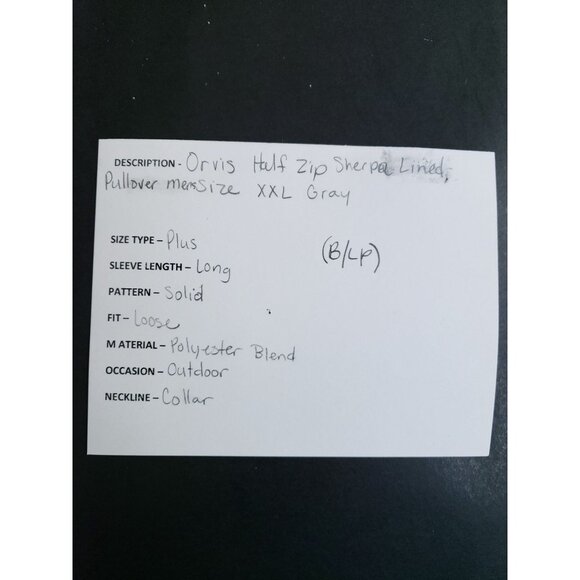 DESCRIPTION - Orvis Half Zip Sherpa Lined,
Pullover mens Size XXL Gray
SIZE TYPE - Plus
(B/LP)
SLEEVE LENGTH - Long
PATTERN - Solid
FIT - Loose
MATERIAL - Polyester Blend
OCCASION - Outdoor
NECKLINE - Collar